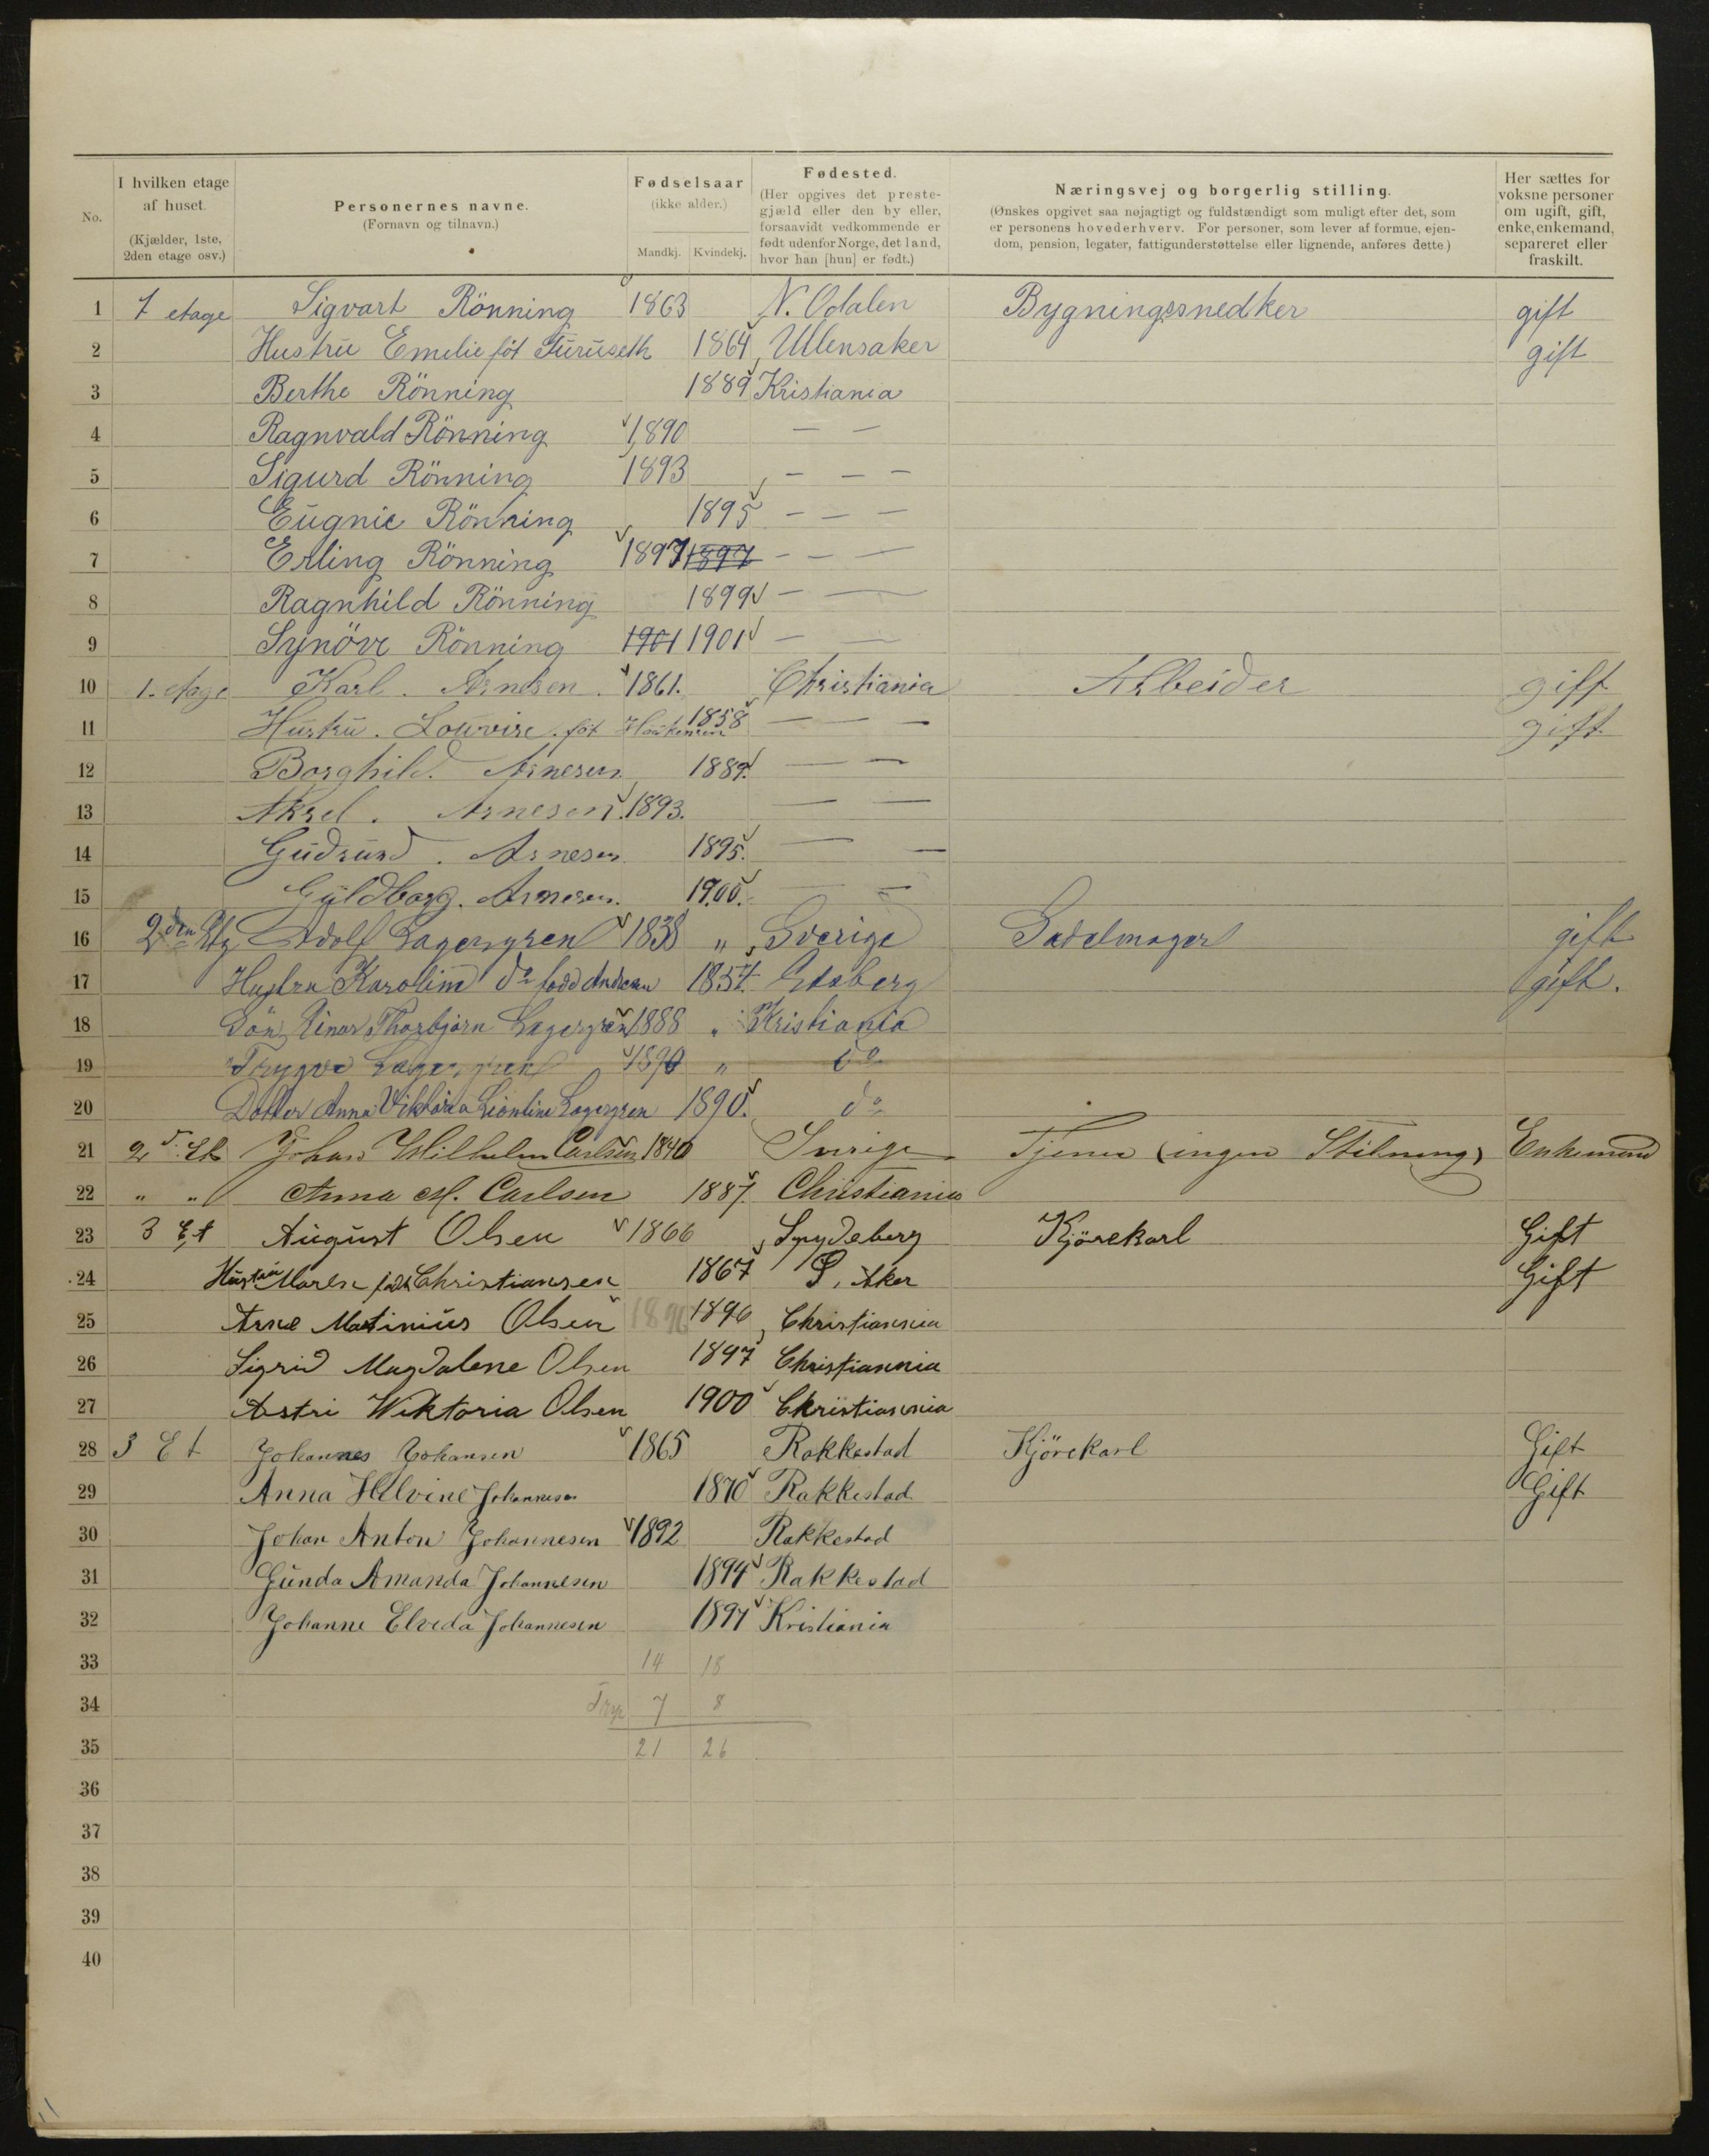 No.
I hvilken etage af huset. (Kjælder, 1ste, 2den etage osv.)
Personernes navne. (Fornavn og tilnavn.)
Fødselsaar (ikke alder.) Mandkj. Kvindekj.
Fødested. (Her opgives det prestegjæld eller den by eller, forsaavidt vedkommende er født udenfor Norge, det land, hvor han [hun] er født.)
Næringsvej og borgerlig stilling. (Ønskes opgivet saa nøjagtigt og fuldstændigt som muligt efter det, som er personens hovederhverv. For personer, som lever af formue, ejendom, pension, legater, fattigunderstøttelse eller lignende, anføres dette.)
Her sættes for voksne personer om ugift, gift, enke, enkemand, separeret eller fraskilt.
1 1 etage Sigvart Rönning 1863 N. Odalen Bygningssnedker gift
2 Hustru Emelie föt Furuseth 1864 Ullensaker gift
3 Berthe Rönning 1889 Kristiania
4 Ragnvald Rönning 1890 — —
5 Sigurd Rönning 1893 — — —
6 Eugnie Rönning 1895 — — —
7 Erling Rönning 1897 1897 — — —
8 Ragnhild Rönning 1899 — —
9 Synöve Rönning 1901 1901 — —
10 1. etage Karl. Arnesen. 1861. Christiania Arbeider gift
11 Hustru. Louvise. föt 1858 — — — gift
12 Borghild. Arnesen 1889. — —
13 Aksel. Arnesen. 1893. — —
14 Gudrund. Arnesen 1895. — —
15 Guldborg. Arnesen. 1900. — —
16 2den Etg Adolf Lagergren 1838 " Sverige Sadelmager gift
17 Hustru Karoline do född Andersen 1857. gift.
18 Sön Einar Thorbjörn Lagergren 1888 " Kristiania
19 Trygve Lagergren 1890 " do
20 Datter Anna Viktoria Leontine Lagergren 1890. do
21 2d. Et. Johan Wilhelm Carlsen 1840 Sverige Tjener (ingen Stilning) Enkemand
22 " " Anna M. Carlsen 1887. Christiania
23 3 Et August Olsen 1866 Spydeberg Kjörekarl Gift
24 Hustru Maren född Christiansen 1867 Ø. Aker Gift
25 Arne Matinius Olsen 1896 1896 Christiannia
26 Sigrid Magdalene Olsen 1897 Christiannia
27 Astri Wiktoria Olsen 1900 Christiannia
28 3 Et Johannes Johansen 1865 Rakkestad Kjörekarl Gift
29 Anna Helvine Johannesen 1870 Rakkestad Gift
30 Johan Anton Johannesen 1892 Rakkestad
31 Gunda Amanda Johannesen 1894 Rakkestad
32 Johanne Elveda Johannesen 1897 Kristiania
33 14 18
34 7 8
35 21 26
36
37
38
39
40
11